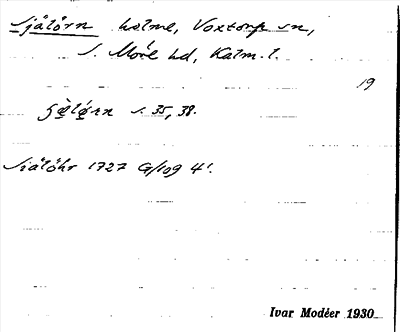 Själörn holme, Voxtorp sn,
S. Möre hd, Kalm. l.
19
s. 35, 38.
Siälöhr 1727 G/109 4¹.
Ivar Modéer 1930